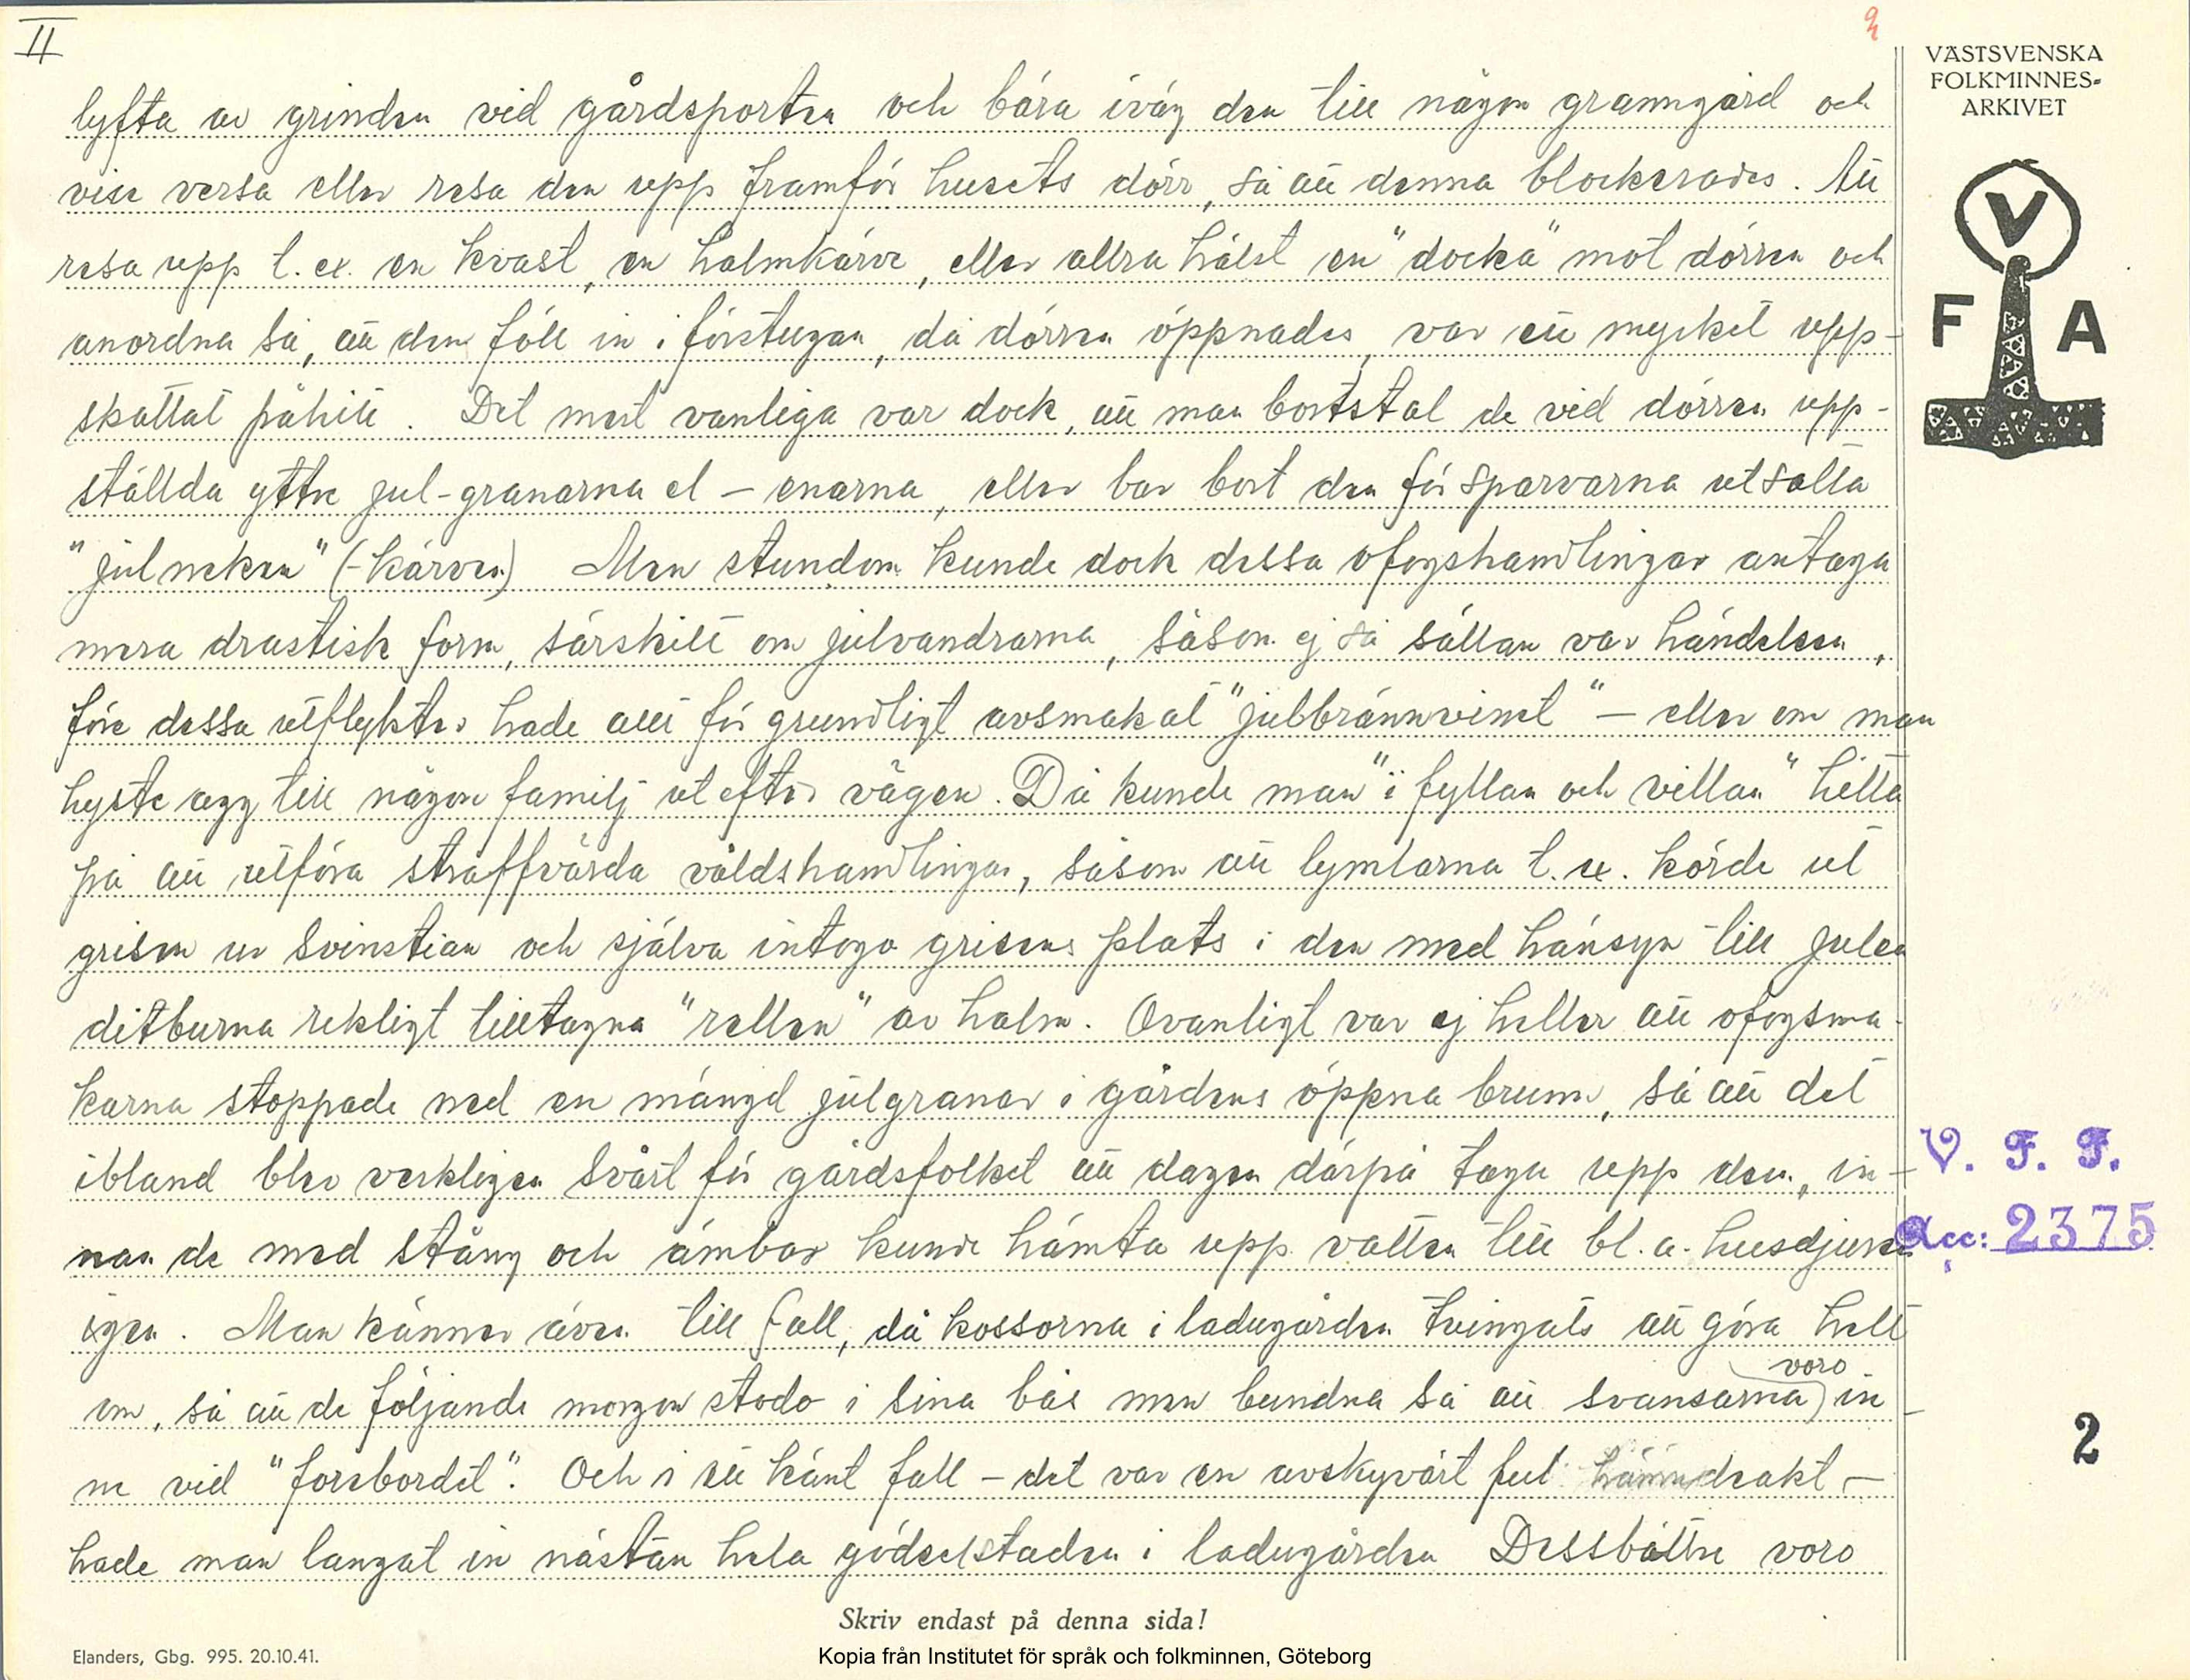 II
2
VÄSTSVENSKA
FOLKMINNES-
ARKIVET
V
F A
lyfta av grinden vid gårdsporten och bära iväg den till någon granngård och
vise versa eller resa den upp framför husets dörr, så att denna blockerades. Att
resa upp t. ex. en kvast, en halmkärve, eller allra hälst en "docka" mot dörren och
anordna så, att den föll in i förstugan, då dörren öppnades, var ett mycket upp-
skattat påhitt. Det mest vanliga var dock, att man bortstal de vid dörren upp-
ställda yttre jul-granarna el - enarna, eller bar bort den för sparvarna utsatta
"julneken" (-kärven) Men stundom kunde dock dessa ofogshandlingar antaga
mera drastisk form, särskilt om julvandrarna, såsom ej så sällan var händelsen,
före dessa utflykter hade allt för grundligt avsmakat "julbrännvinet" - eller om man
hyste agg till någon familj ut efter vägen. Då kunde man "i fyllan och villan" hitta
på att utföra straffvärda våldshandlingar, såsom att lymlarna t. ex. körde ut
grisen ur svinstian och själva intogo grisens plats i den med hänsyn till julen
ditburna rikligt tilltagna "rellen" av halm. Ovanligt var ej heller att ofogsma-
karna stoppade ned en mängd julgranar i gårdens öppna brunn, så att det
ibland blev verkligen svårt för gårdsfolket att dagen därpå taga upp dem, in-
nan de med stång och ämbar kunde hämta upp vatten till bl. a. husdjuren
igen. Man känner även till fall, då kossorna i ladugården tvingats att göra helt
om, så att de följande morgon stodo i sina bås men bundna så att svansarna voro in-
ne vid "forebordet". Och i ett känt fall - det var en avskyvärt ful hämndeakt -
hade man langat in nästan hela gödselstaden i ladugården Dessbättre voro
V. F. F.
Acc: 2375
2
Skriv endast på denna sida!
Elanders, Gbg. 995. 20.10.41.
Kopia från Institutet för språk och folkminnen, Göteborg